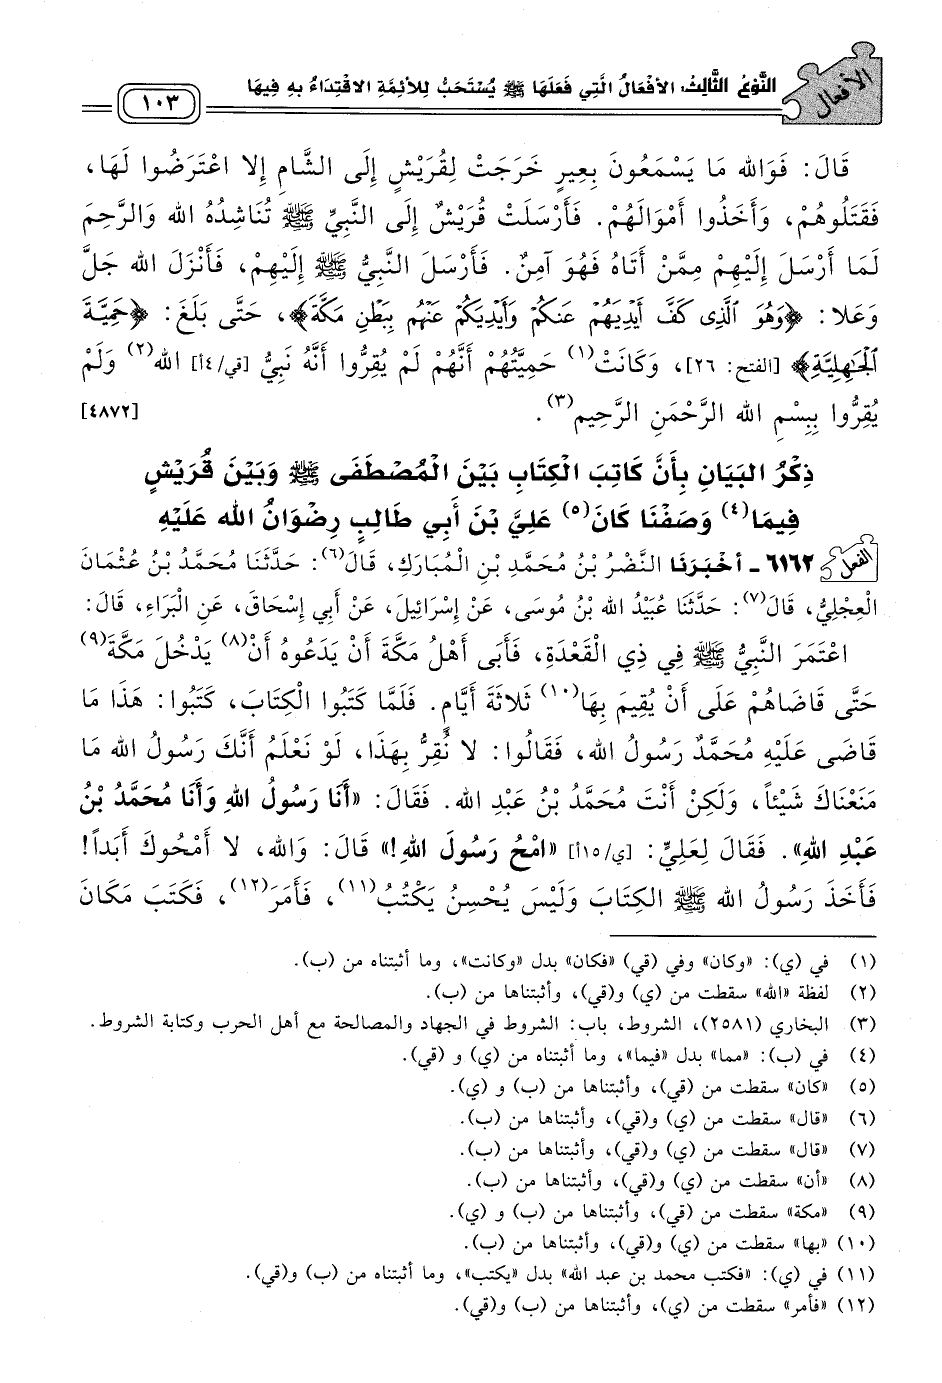 الأفعال
النَّوْعُ الثَّالِثُ، الأَفْعَالُ الَّتِي فَعَلَهَا ﷺ يُسْتَحَبُّ لِلأَئِمَّةِ الاقْتِدَاءُ بِهِ فِيهَا
١٠٣
قَالَ: فَوَالله مَا يَسْمَعُونَ بِعِيرٍ خَرَجَتْ لِقُرَيْشٍ إِلَى الشَّامِ إِلا اعْتَرَضُوا لَهَا،
فَقَتَلُوهُمْ، وَأَخَذُوا أَمْوَالَهُمْ. فَأَرْسَلَتْ قُرَيْشٌ إِلَى النَّبِيِّ ﷺ تُنَاشِدُهُ الله وَالرَّحِمَ
لَمَا أَرْسَلَ إِلَيْهِمْ مِمَّنْ أَتَاهُ فَهُوَ آمِنٌ. فَأَرْسَلَ النَّبِيُّ ﷺ إِلَيْهِمْ، فَأَنْزَلَ الله جَلَّ
وَعَلا: ﴿وَهُوَ ٱلَّذِى كَفَّ أَيْدِيَهُمْ عَنكُمْ وَأَيْدِيَكُمْ عَنْهُم بِبَطْنِ مَكَّةَ﴾، حَتَّى بَلَغَ: ﴿حَمِيَّةَ
ٱلْجَٰهِلِيَّةِ﴾ [الفتح: ٢٦]، وَكَانَتْ(١) حَمِيَّتُهُمْ أَنَّهُمْ لَمْ يُقِرُّوا أَنَّهُ نَبِيُّ [قي/٤أ] الله(٢) وَلَمْ
يُقِرُّوا بِبِسْمِ الله الرَّحْمَنِ الرَّحِيمِ(٣). [٤٨٧٢]
ذِكْرُ البَيَانِ بِأَنَّ كَاتِبَ الْكِتَابِ بَيْنَ الْمُصْطَفَى ﷺ وَبَيْنَ قُرَيْشٍ
فِيمَا(٤) وَصَفْنَا كَانَ(٥) عَلِيَّ بْنَ أَبِي طَالِبٍ رِضْوَانُ الله عَلَيْهِ
الفعل ٦١٦٢ - أَخْبَرَنَا النَّضْرُ بْنُ مُحَمَّدِ بْنِ الْمُبَارَكِ، قَالَ(٦): حَدَّثَنَا مُحَمَّدُ بْنُ عُثْمَانَ
الْعِجْلِيُّ، قَالَ(٧): حَدَّثَنَا عُبَيْدُ الله بْنُ مُوسَى، عَنْ إِسْرَائِيلَ، عَنْ أَبِي إِسْحَاقَ، عَنِ الْبَرَاءِ، قَالَ:
اعْتَمَرَ النَّبِيُّ ﷺ فِي ذِي الْقَعْدَةِ، فَأَبَى أَهْلُ مَكَّةَ أَنْ يَدَعُوهُ أَنْ(٨) يَدْخُلَ مَكَّةَ(٩)
حَتَّى قَاضَاهُمْ عَلَى أَنْ يُقِيمَ بِهَا(١٠) ثَلاثَةَ أَيَّامٍ. فَلَمَّا كَتَبُوا الْكِتَابَ، كَتَبُوا: هَذَا مَا
قَاضَى عَلَيْهِ مُحَمَّدٌ رَسُولُ الله، فَقَالُوا: لا نُقِرُّ بِهَذَا، لَوْ نَعْلَمُ أَنَّكَ رَسُولُ الله مَا
مَنَعْنَاكَ شَيْئاً، وَلَكِنْ أَنْتَ مُحَمَّدُ بْنُ عَبْدِ الله. فَقَالَ: «أَنَا رَسُولُ اللهِ وَأَنَا مُحَمَّدُ بْنُ
عَبْدِ اللهِ». فَقَالَ لِعَلِيٍّ: [ي/١٥أ] «امْحُ رَسُولَ اللهِ!» قَالَ: وَالله، لا أَمْحُوكَ أَبَداً!
فَأَخَذَ رَسُولُ الله ﷺ الكِتَابَ وَلَيْسَ يُحْسِنُ يَكْتُبُ(١١)، فَأَمَرَ(١٢)، فَكَتَبَ مَكَانَ
(١) في (ي): «وكان» وفي (قي) «فكان» بدل «وكانت»، وما أثبتناه من (ب).
(٢) لفظة «الله» سقطت من (ي) و(قي)، وأثبتناها من (ب).
(٣) البخاري (٢٥٨١)، الشروط، باب: الشروط في الجهاد والمصالحة مع أهل الحرب وكتابة الشروط.
(٤) في (ب): «مما» بدل «فيما»، وما أثبتناه من (ي) و (قي).
(٥) «كان» سقطت من (قي)، وأثبتناها من (ب) و (ي).
(٦) «قال» سقطت من (ي) و(قي)، وأثبتناها من (ب).
(٧) «قال» سقطت من (ي) و(قي)، وأثبتناها من (ب).
(٨) «أن» سقطت من (ي) و(قي)، وأثبتناها من (ب).
(٩) «مكة» سقطت من (قي)، وأثبتناها من (ب) و (ي).
(١٠) «بها» سقطت من (ي) و(قي)، وأثبتناها من (ب).
(١١) في (ي): «فكتب محمد بن عبد الله» بدل «يكتب»، وما أثبتناه من (ب) و(قي).
(١٢) «فأمر» سقطت من (ي)، وأثبتناها من (ب) و(قي).